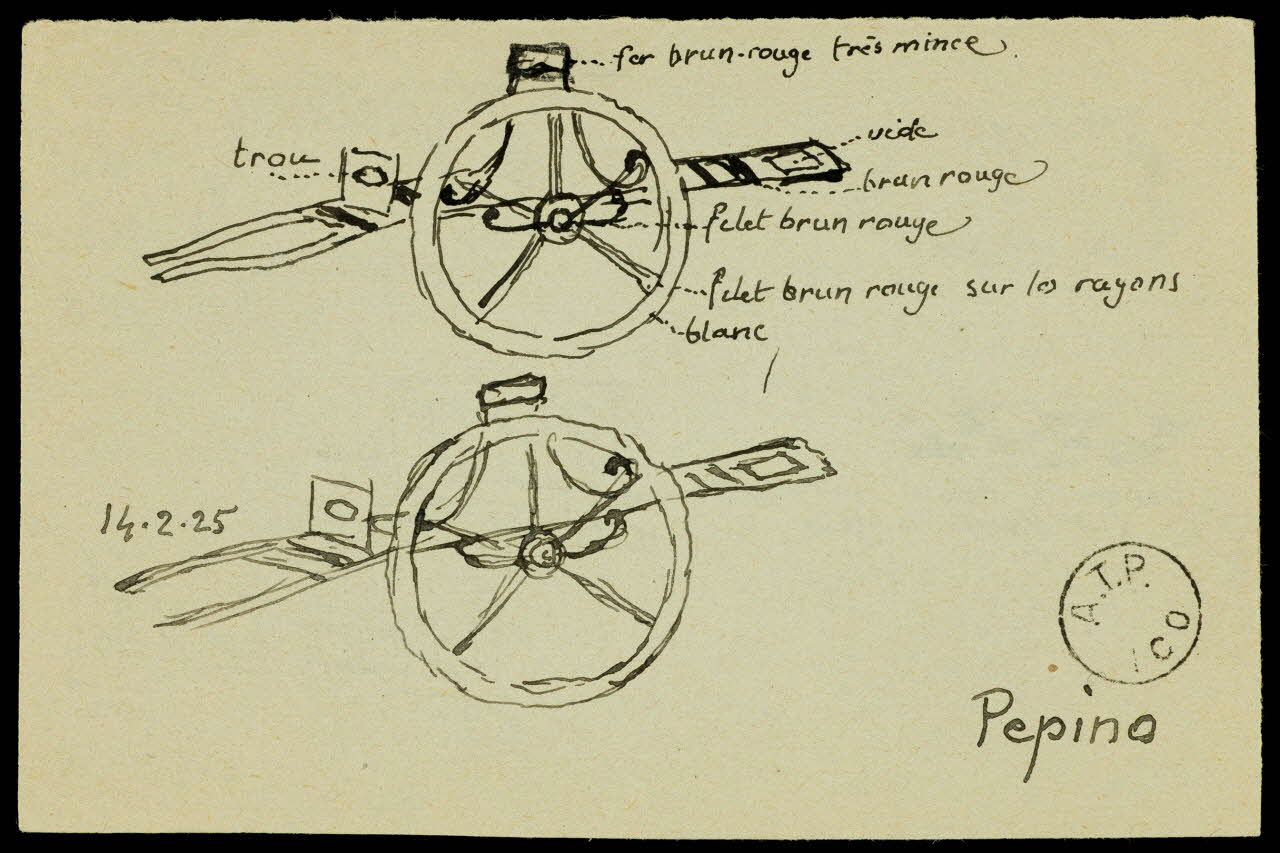 fer brun-rouge très mince
trou
vide
brun rouge
filet brun rouge
filet brun rouge sur les rayons
blanc
14.2.25
A.T.P.
ICO
Pepino